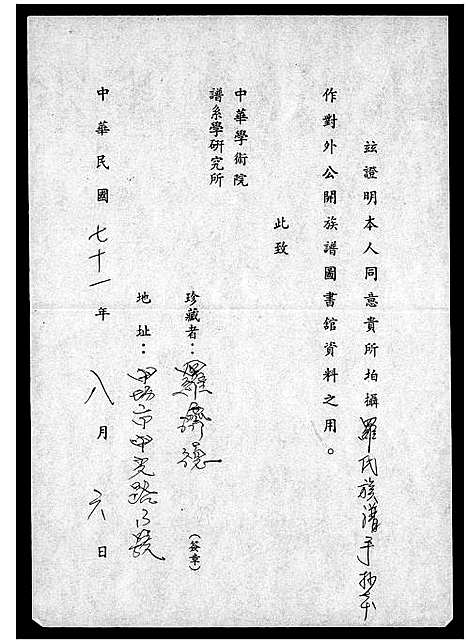 玆證明本人同意貴所拍攝羅氏族譜手抄本
作對外公開族譜圖書館資料之用。
此致
中華學術院
譜系學硏究所
珍藏者：羅濟德(簽章)
地址：中壢市中光路15號
中華民國七十一年八月六日